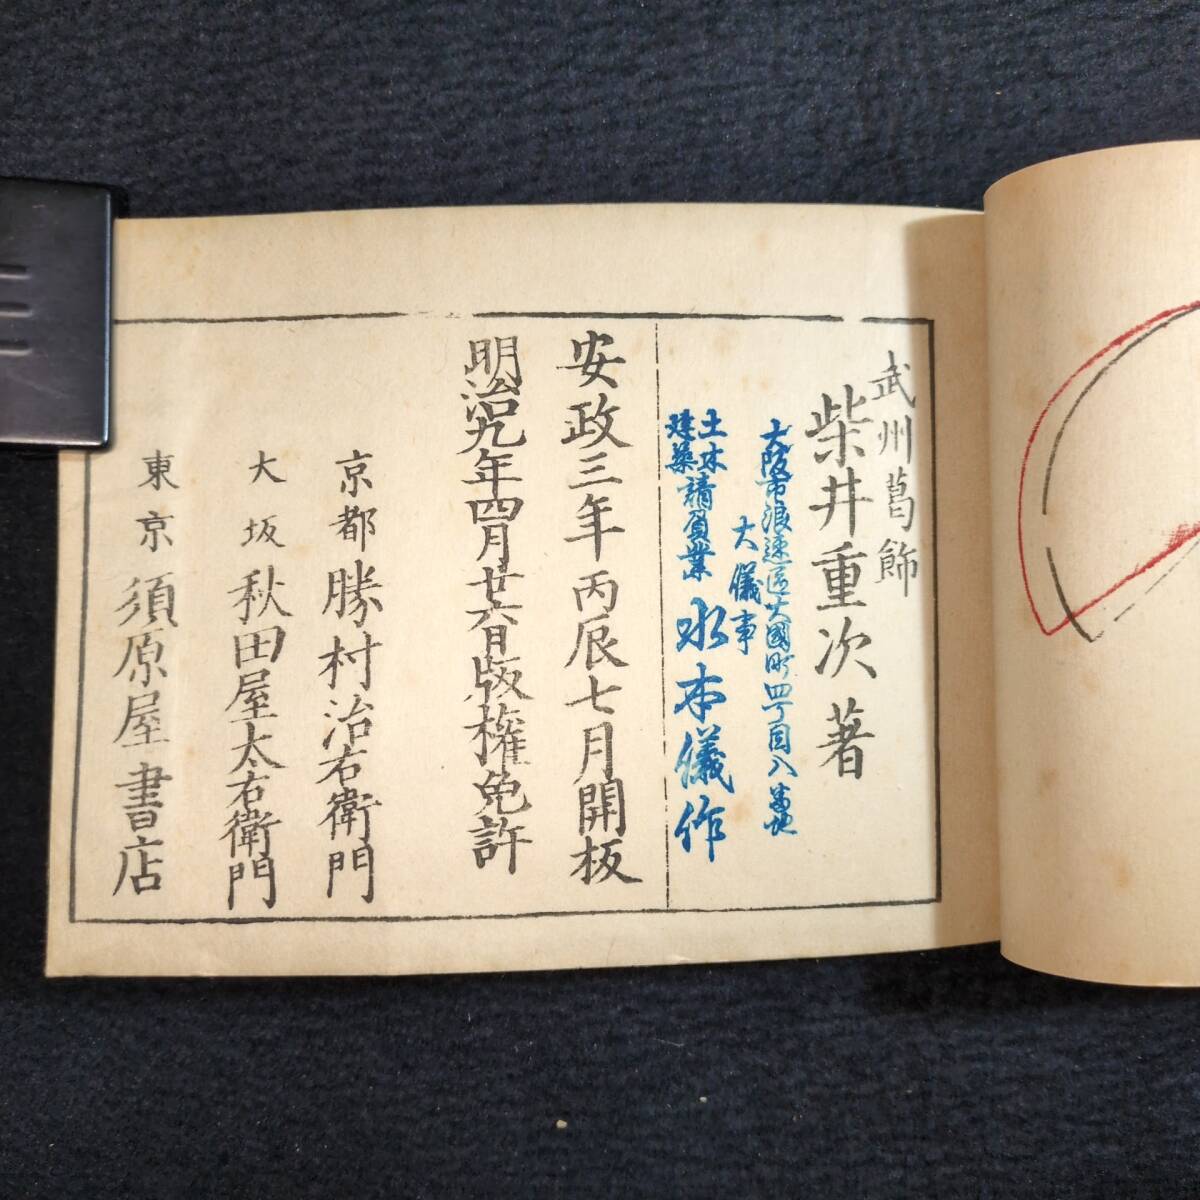 武州葛飾
柴井重次著
大阪市浪速區大國町四丁目八番地
大儀事
土木
建築
請負業 水本儀作
安政三年丙辰七月開板
明治九年四月廿六日版権免許
京都 勝村治右衛門
大坂 秋田屋太右衛門
東京 須原屋書店